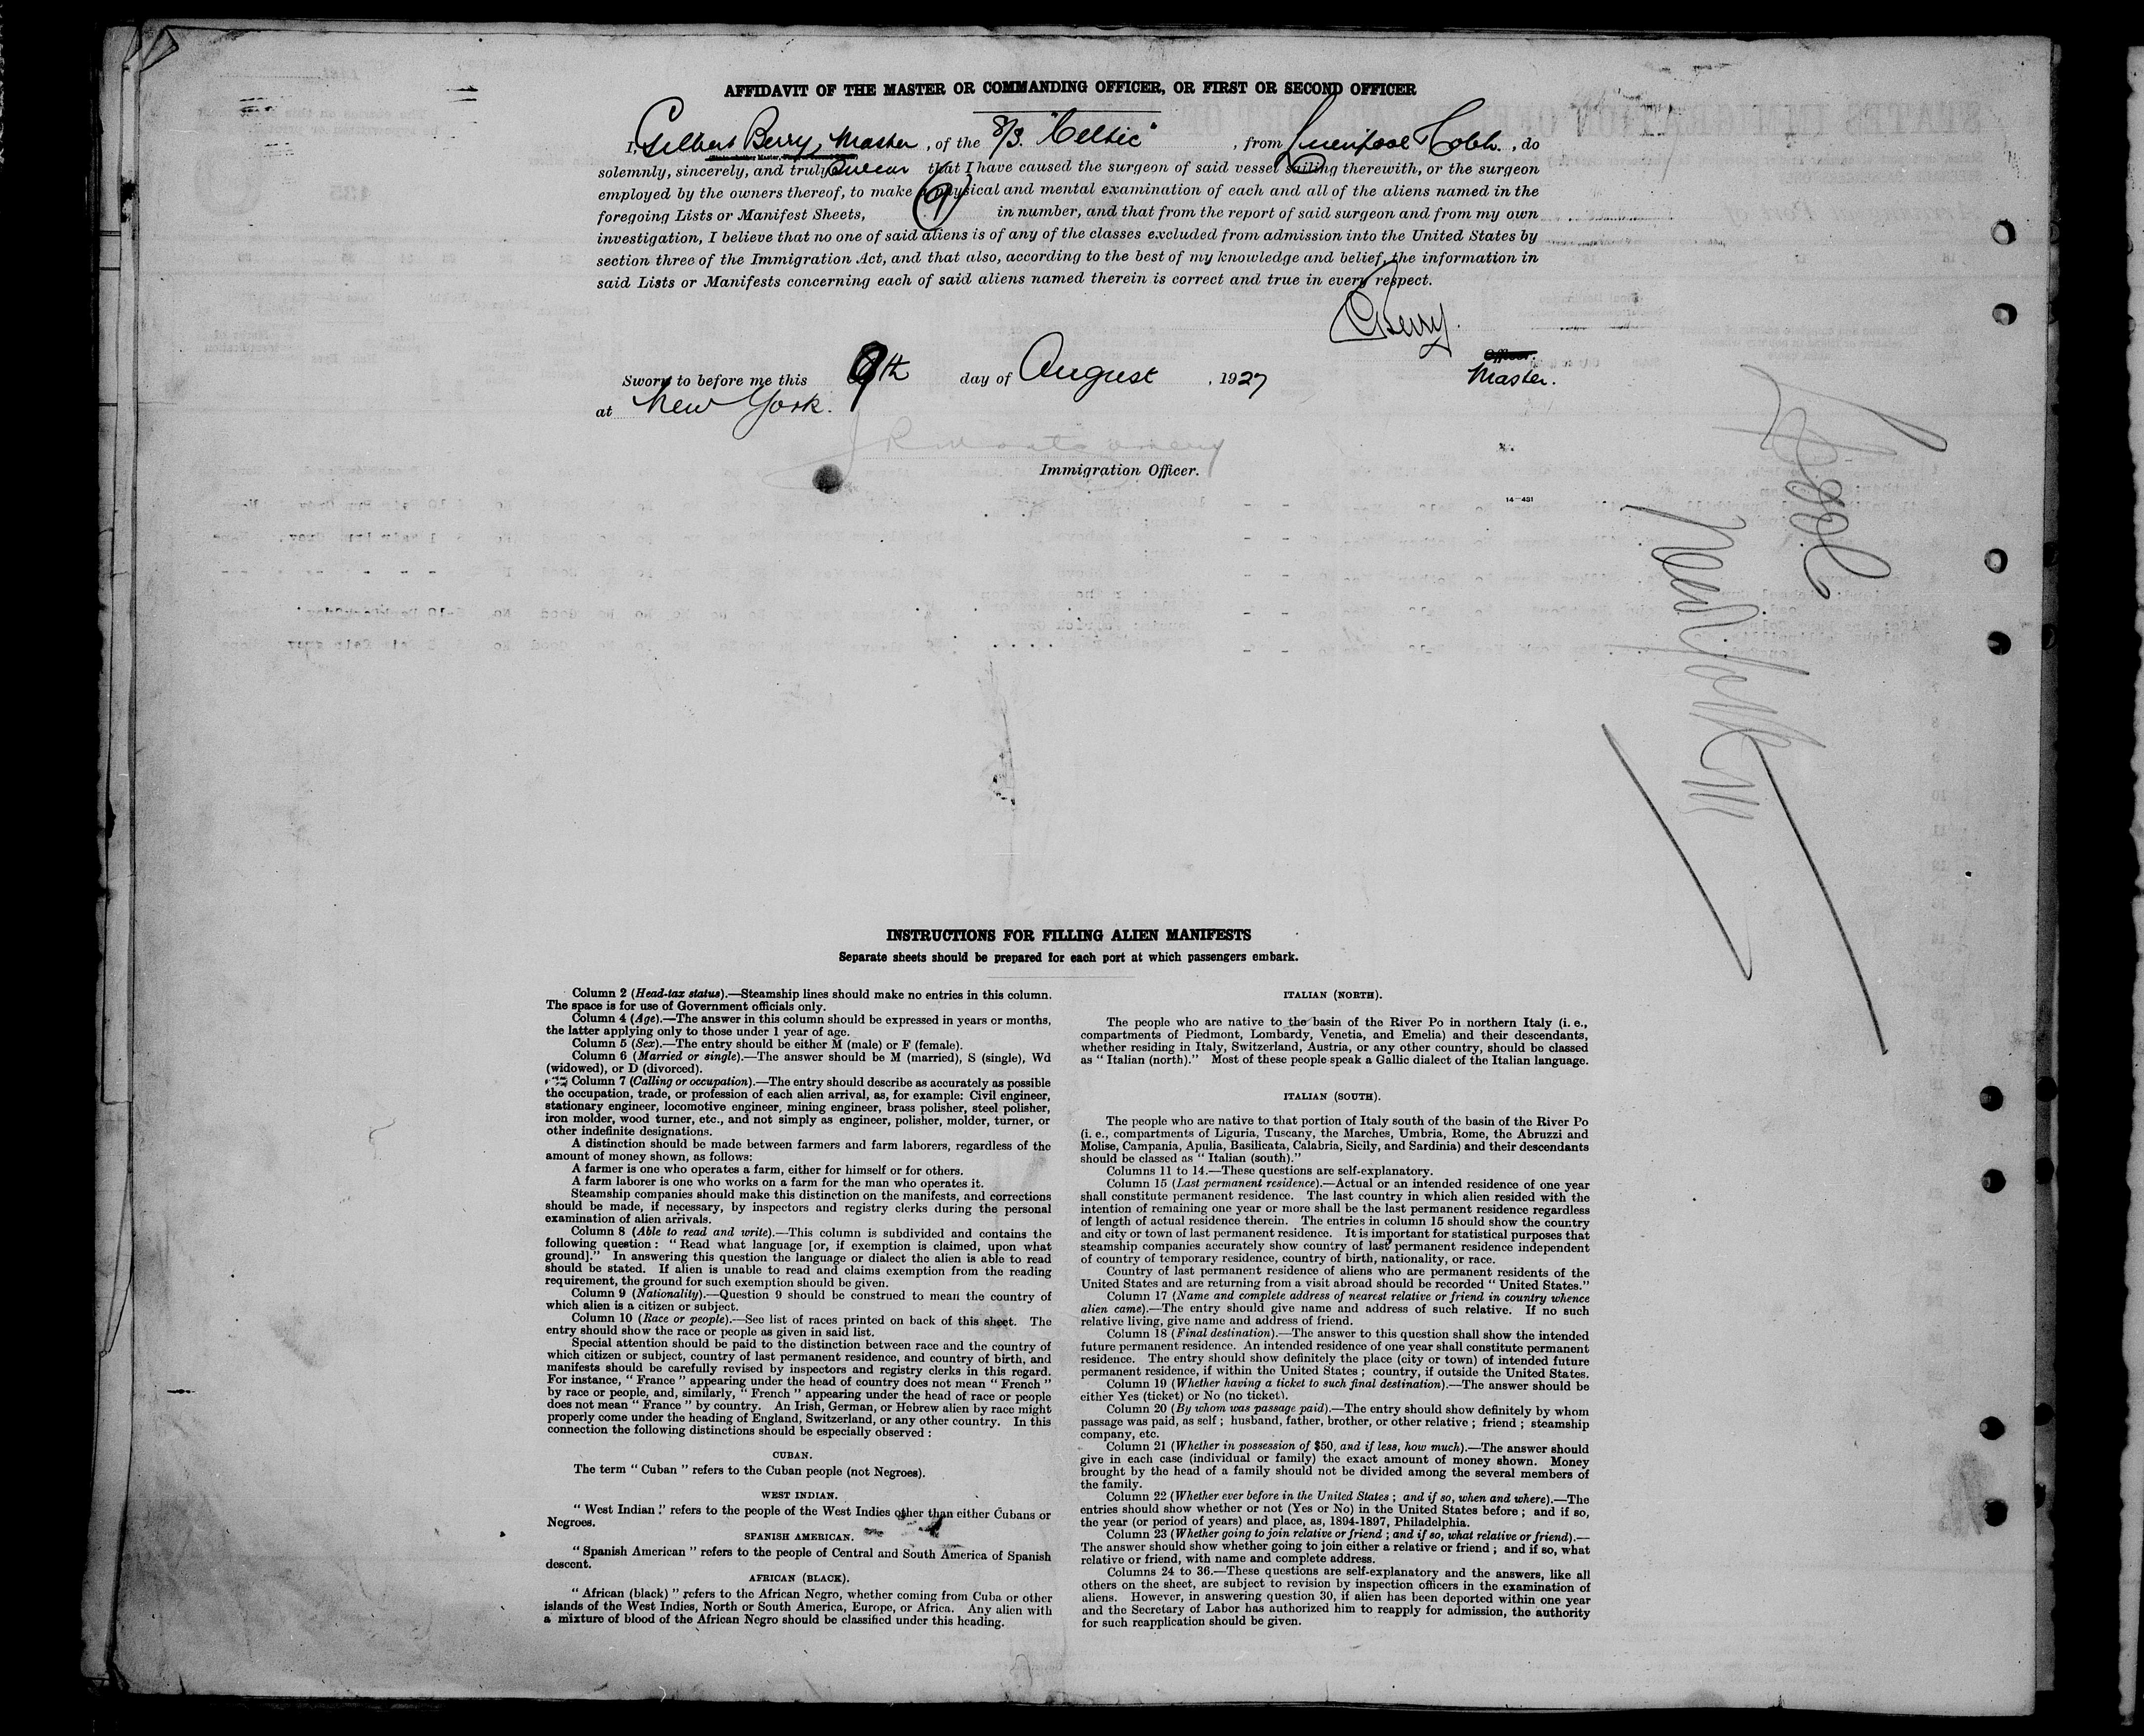 AFFIDAVIT OF THE MASTER OR COMMANDING OFFICER, OR FIRST OR SECOND OFFICER
I, Gilbert Berry, Master , of the S/S. "Celtic" , from Liverpool Cobh. , do
solemnly, sincerely, and truly swear that I have caused the surgeon of said vessel sailing therewith, or the surgeon
employed by the owners thereof, to make a physical and mental examination of each and all of the aliens named in the
foregoing Lists or Manifest Sheets, (9) in number, and that from the report of said surgeon and from my own
investigation, I believe that no one of said aliens is of any of the classes excluded from admission into the United States by
section three of the Immigration Act, and that also, according to the best of my knowledge and belief, the information in
said Lists or Manifests concerning each of said aliens named therein is correct and true in every respect.
GBerry.
Officer.
Master.
Sworn to before me this 9th day of August , 1927
at New York.
Immigration Officer.
14—431
New York
INSTRUCTIONS FOR FILLING ALIEN MANIFESTS
Separate sheets should be prepared for each port at which passengers embark.
Column 2 (Head-tax status).—Steamship lines should make no entries in this column.
The space is for use of Government officials only.
Column 4 (Age).—The answer in this column should be expressed in years or months,
the latter applying only to those under 1 year of age.
Column 5 (Sex).—The entry should be either M (male) or F (female).
Column 6 (Married or single).—The answer should be M (married), S (single), Wd
(widowed), or D (divorced).
Column 7 (Calling or occupation).—The entry should describe as accurately as possible
the occupation, trade, or profession of each alien arrival, as, for example: Civil engineer,
stationary engineer, locomotive engineer, mining engineer, brass polisher, steel polisher,
iron molder, wood turner, etc., and not simply as engineer, polisher, molder, turner, or
other indefinite designations.
A distinction should be made between farmers and farm laborers, regardless of the
amount of money shown, as follows:
A farmer is one who operates a farm, either for himself or for others.
A farm laborer is one who works on a farm for the man who operates it.
Steamship companies should make this distinction on the manifests, and corrections
should be made, if necessary, by inspectors and registry clerks during the personal
examination of alien arrivals.
Column 8 (Able to read and write).—This column is subdivided and contains the
following question: "Read what language [or, if exemption is claimed, upon what
ground]." In answering this question the language or dialect the alien is able to read
should be stated. If alien is unable to read and claims exemption from the reading
requirement, the ground for such exemption should be given.
Column 9 (Nationality).—Question 9 should be construed to mean the country of
which alien is a citizen or subject.
Column 10 (Race or people).—See list of races printed on back of this sheet. The
entry should show the race or people as given in said list.
Special attention should be paid to the distinction between race and the country of
which citizen or subject, country of last permanent residence, and country of birth, and
manifests should be carefully revised by inspectors and registry clerks in this regard.
For instance, "France" appearing under the head of country does not mean "French"
by race or people, and, similarly, "French" appearing under the head of race or people
does not mean "France" by country. An Irish, German, or Hebrew alien by race might
properly come under the heading of England, Switzerland, or any other country. In this
connection the following distinctions should be especially observed:
CUBAN.
The term "Cuban" refers to the Cuban people (not Negroes).
WEST INDIAN.
"West Indian" refers to the people of the West Indies other than either Cubans or
Negroes.
SPANISH AMERICAN.
"Spanish American" refers to the people of Central and South America of Spanish
descent.
AFRICAN (BLACK).
"African (black)" refers to the African Negro, whether coming from Cuba or other
islands of the West Indies, North or South America, Europe, or Africa. Any alien with
a mixture of blood of the African Negro should be classified under this heading.
ITALIAN (NORTH).
The people who are native to the basin of the River Po in northern Italy (i. e.,
compartments of Piedmont, Lombardy, Venetia, and Emelia) and their descendants,
whether residing in Italy, Switzerland, Austria, or any other country, should be classed
as "Italian (north)." Most of these people speak a Gallic dialect of the Italian language.
ITALIAN (SOUTH).
The people who are native to that portion of Italy south of the basin of the River Po
(i. e., compartments of Liguria, Tuscany, the Marches, Umbria, Rome, the Abruzzi and
Molise, Campania, Apulia, Basilicata, Calabria, Sicily, and Sardinia) and their descendants
should be classed as "Italian (south)."
Columns 11 to 14.—These questions are self-explanatory.
Column 15 (Last permanent residence).—Actual or an intended residence of one year
shall constitute permanent residence. The last country in which alien resided with the
intention of remaining one year or more shall be the last permanent residence regardless
of length of actual residence therein. The entries in column 15 should show the country
and city or town of last permanent residence. It is important for statistical purposes that
steamship companies accurately show country of last permanent residence independent
of country of temporary residence, country of birth, nationality, or race.
Country of last permanent residence of aliens who are permanent residents of the
United States and are returning from a visit abroad should be recorded "United States."
Column 17 (Name and complete address of nearest relative or friend in country whence
alien came).—The entry should give name and address of such relative. If no such
relative living, give name and address of friend.
Column 18 (Final destination).—The answer to this question shall show the intended
future permanent residence. An intended residence of one year shall constitute permanent
residence. The entry should show definitely the place (city or town) of intended future
permanent residence, if within the United States; country, if outside the United States.
Column 19 (Whether having a ticket to such final destination).—The answer should be
either Yes (ticket) or No (no ticket).
Column 20 (By whom was passage paid).—The entry should show definitely by whom
passage was paid, as self; husband, father, brother, or other relative; friend; steamship
company, etc.
Column 21 (Whether in possession of $50, and if less, how much).—The answer should
give in each case (individual or family) the exact amount of money shown. Money
brought by the head of a family should not be divided among the several members of
the family.
Column 22 (Whether ever before in the United States; and if so, when and where).—The
entries should show whether or not (Yes or No) in the United States before; and if so,
the year (or period of years) and place, as, 1894-1897, Philadelphia.
Column 23 (Whether going to join relative or friend; and if so, what relative or friend).—
The answer should show whether going to join either a relative or friend; and if so, what
relative or friend, with name and complete address.
Columns 24 to 36.—These questions are self-explanatory and the answers, like all
others on the sheet, are subject to revision by inspection officers in the examination of
aliens. However, in answering question 30, if alien has been deported within one year
and the Secretary of Labor has authorized him to reapply for admission, the authority
for such reapplication should be given.